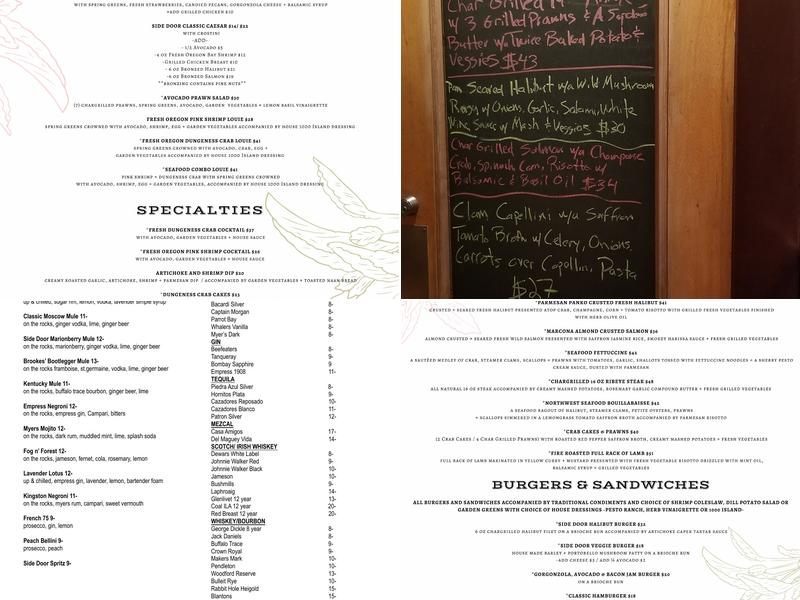 WITH SPRING GREENS, FRESH STRAWBERRIES, CANDIED PECANS, GORGONZOLA CHEESE + BALSAMIC SYRUP
+ADD GRILLED CHICKEN $10
SIDE DOOR CLASSIC CAESAR $14/ $22
WITH CROSTINI
-ADD-
- 1/2 AVOCADO $5
-4 OZ FRESH OREGON BAY SHRIMP $12
-GRILLED CHICKEN BREAST $10
- 6 OZ BRONZED HALIBUT $21
-6 OZ BRONZED SALMON $19
**BRONZING CONTAINS PINE NUTS**
*AVOCADO PRAWN SALAD $30
(7) CHARGRILLED PRAWNS, SPRING GREENS, AVOCADO, GARDEN VEGETABLES + LEMON BASIL VINAIGRETTE
FRESH OREGON PINK SHRIMP LOUIE $28
SPRING GREENS CROWNED WITH AVOCADO, SHRIMP, EGG + GARDEN VEGETABLES ACCOMPANIED BY HOUSE 1000 ISLAND DRESSING
*FRESH OREGON DUNGENESS CRAB LOUIE $41
SPRING GREENS CROWNED WITH AVOCADO, CRAB, EGG +
GARDEN VEGETABLES ACCOMPANIED BY HOUSE 1000 ISLAND DRESSING
*SEAFOOD COMBO LOUIE $41
PINK SHRIMP + DUNGENESS CRAB WITH SPRING GREENS CROWNED
WITH AVOCADO, SHRIMP, EGG + GARDEN VEGETABLES, ACCOMPANIED BY HOUSE 1000 ISLAND DRESSING
SPECIALTIES
*FRESH DUNGENESS CRAB COCKTAIL $27
WITH AVOCADO, GARDEN VEGETABLES + HOUSE SAUCE
*FRESH OREGON PINK SHRIMP COCKTAIL $16
WITH AVOCADO, GARDEN VEGETABLES + HOUSE SAUCE
ARTICHOKE AND SHRIMP DIP $20
CREAMY ROASTED GARLIC, ARTICHOKE, SHRIMP + PARMESAN DIP / ACCOMPANIED BY GARDEN VEGETABLES + TOASTED NAAN BREAD
*DUNGENESS CRAB CAKES $23
Char Grilled
w/ 3 Grilled Prawns &
Butter w/ Twice Baked Potatoes
Veggies $43
Pan Seared Halibut w/a Wild Mushroom
w/ Onions, Garlic, Salami, White
Wine Sauce w/ Mash & Veggies $30
Char Grilled Salmon w/a Champagne
Crab, Spinach, Corn, Risotto w/
Balsamic & Basil Oil $34
Clam Capellini w/a Saffron
Tomato Broth w/ Celery, Onions
Carrots over Capellini Pasta
$27
up & chilled, sugar rim, lemon, vodka, lavender simple syrup
Classic Moscow Mule 11-
on the rocks, ginger vodka, lime, ginger beer
Side Door Marionberry Mule 12-
on the rocks, marionberry, ginger vodka, lime, ginger beer
Brookes' Bootlegger Mule 13-
on the rocks framboise, st.germaine, vodka, lime, ginger beer
Kentucky Mule 11-
on the rocks, buffalo trace bourbon, ginger beer, lime
Empress Negroni 12-
on the rocks, empress gin, Campari, bitters
Myers Mojito 12-
on the rocks, dark rum, muddled mint, lime, splash soda
Fog n' Forest 12-
on the rocks, jameson, fernet, cola, rosemary, lemon
Lavender Lotus 12-
up & chilled, empress gin, lavender, lemon, bartender foam
Kingston Negroni 11-
on the rocks, myers rum, campari, sweet vermouth
French 75 9-
prosecco, gin, lemon
Peach Bellini 9-
prosecco, peach
Side Door Spritz 9-
Bacardi Silver 8-
Captain Morgan 8-
Parrot Bay 8-
Whalers Vanilla 8-
Myer's Dark 8-
GIN
Beefeaters 8-
Tanqueray 9-
Bombay Sapphire 9
Empress 1908 11-
TEQUILA
Piedra Azul Silver 8-
Hornitos Plata 9-
Cazadores Reposado 10-
Cazadores Blanco 11-
Patron Silver 12-
MEZCAL
Casa Amigos 17-
Del Maguey Vida 14-
SCOTCH/ IRISH WHISKEY
Dewars White Label 8-
Johnnie Walker Red 9-
Johnnie Walker Black 10-
Jameson 10-
Bushmills 9-
Laphroaig 14-
Glenlivet 12 year 13-
Coal ILA 12 year 20-
Red Breast 12 year 20-
WHISKEY/BOURBON
George Dickle 8 year 8-
Jack Daniels 8-
Buffalo Trace 9-
Crown Royal 9-
Makers Mark 10-
Pendleton 10-
Woodford Reserve 13-
Bulleit Rye 10-
Rabbit Hole Heigold 15-
Blantons 15-
*PARMESAN PANKO CRUSTED FRESH HALIBUT $41
CRUSTED + SEARED FRESH HALIBUT PRESENTED ATOP CRAB, CHAMPAGNE, CORN + TOMATO RISOTTO WITH GRILLED FRESH VEGETABLES FINISHED
WITH HERB OLIVE OIL
*MARCONA ALMOND CRUSTED SALMON $36
ALMOND CRUSTED + SEARED FRESH WILD SALMON PRESENTED WITH SAFFRON JASMINE RICE, SMOKEY HARISSA SAUCE + FRESH GRILLED VEGETABLES
*SEAFOOD FETTUCCINE $42
A SAUTÉED MEDLEY OF CRAB, STEAMER CLAMS, SCALLOPS + PRAWNS WITH TOMATOES, GARLIC, SHALLOTS TOSSED WITH FETTUCCINE NOODLES + A SHERRY PESTO
CREAM SAUCE, DUSTED WITH PARMESAN
*CHARGRILLED 16 OZ RIBEYE STEAK $48
ALL NATURAL 16 OZ STEAK ACCOMPANIED BY CREAMY MASHED POTATOES, ROSEMARY GARLIC COMPOUND BUTTER + FRESH GRILLED VEGETABLES
*NORTHWEST SEAFOOD BOUILLABAISSE $42
A SEAFOOD RAGOUT OF HALIBUT, STEAMER CLAMS, PETITE OYSTERS, PRAWNS
+ SCALLOPS SIMMERED IN A LEMONGRASS TOMATO SAFFRON BROTH ACCOMPANIED BY PARMESAN RISOTTO
*CRAB CAKES & PRAWNS $40
(2 CRAB CAKES / 4 CHAR GRILLED PRAWNS) WITH ROASTED RED PEPPER SAFFRON BROTH, CREAMY MASHED POTATOES + FRESH VEGETABLES
*FIRE ROASTED FULL RACK OF LAMB $51
FULL RACK OF LAMB MARINATED IN YELLOW CURRY + MUSTARD PRESENTED WITH FRESH VEGETABLE RISOTTO DRIZZLED WITH MINT OIL,
BALSAMIC SYRUP + GRILLED VEGETABLES
BURGERS & SANDWICHES
ALL BURGERS AND SANDWICHES ACCOMPANIED BY TRADITIONAL CONDIMENTS AND CHOICE OF SHRIMP COLESLAW, DILL POTATO SALAD OR
GARDEN GREENS WITH CHOICE OF HOUSE DRESSINGS -PESTO RANCH, HERB VINAIGRETTE OR 1000 ISLAND-
*SIDE DOOR HALIBUT BURGER $32
6 OZ CHARGRILLED HALIBUT FILET ON A BRIOCHE BUN ACCOMPANIED BY ARTICHOKE CAPER TARTAR SAUCE
*SIDE DOOR VEGGIE BURGER $18
HOUSE MADE BARLEY + PORTOBELLO MUSHROOM PATTY ON A BRIOCHE BUN
-ADD CHEESE $3 / ADD ½ AVOCADO $2
*GORGONZOLA, AVOCADO & BACON JAM BURGER $20
ON A BRIOCHE BUN
*CLASSIC HAMBURGER $18